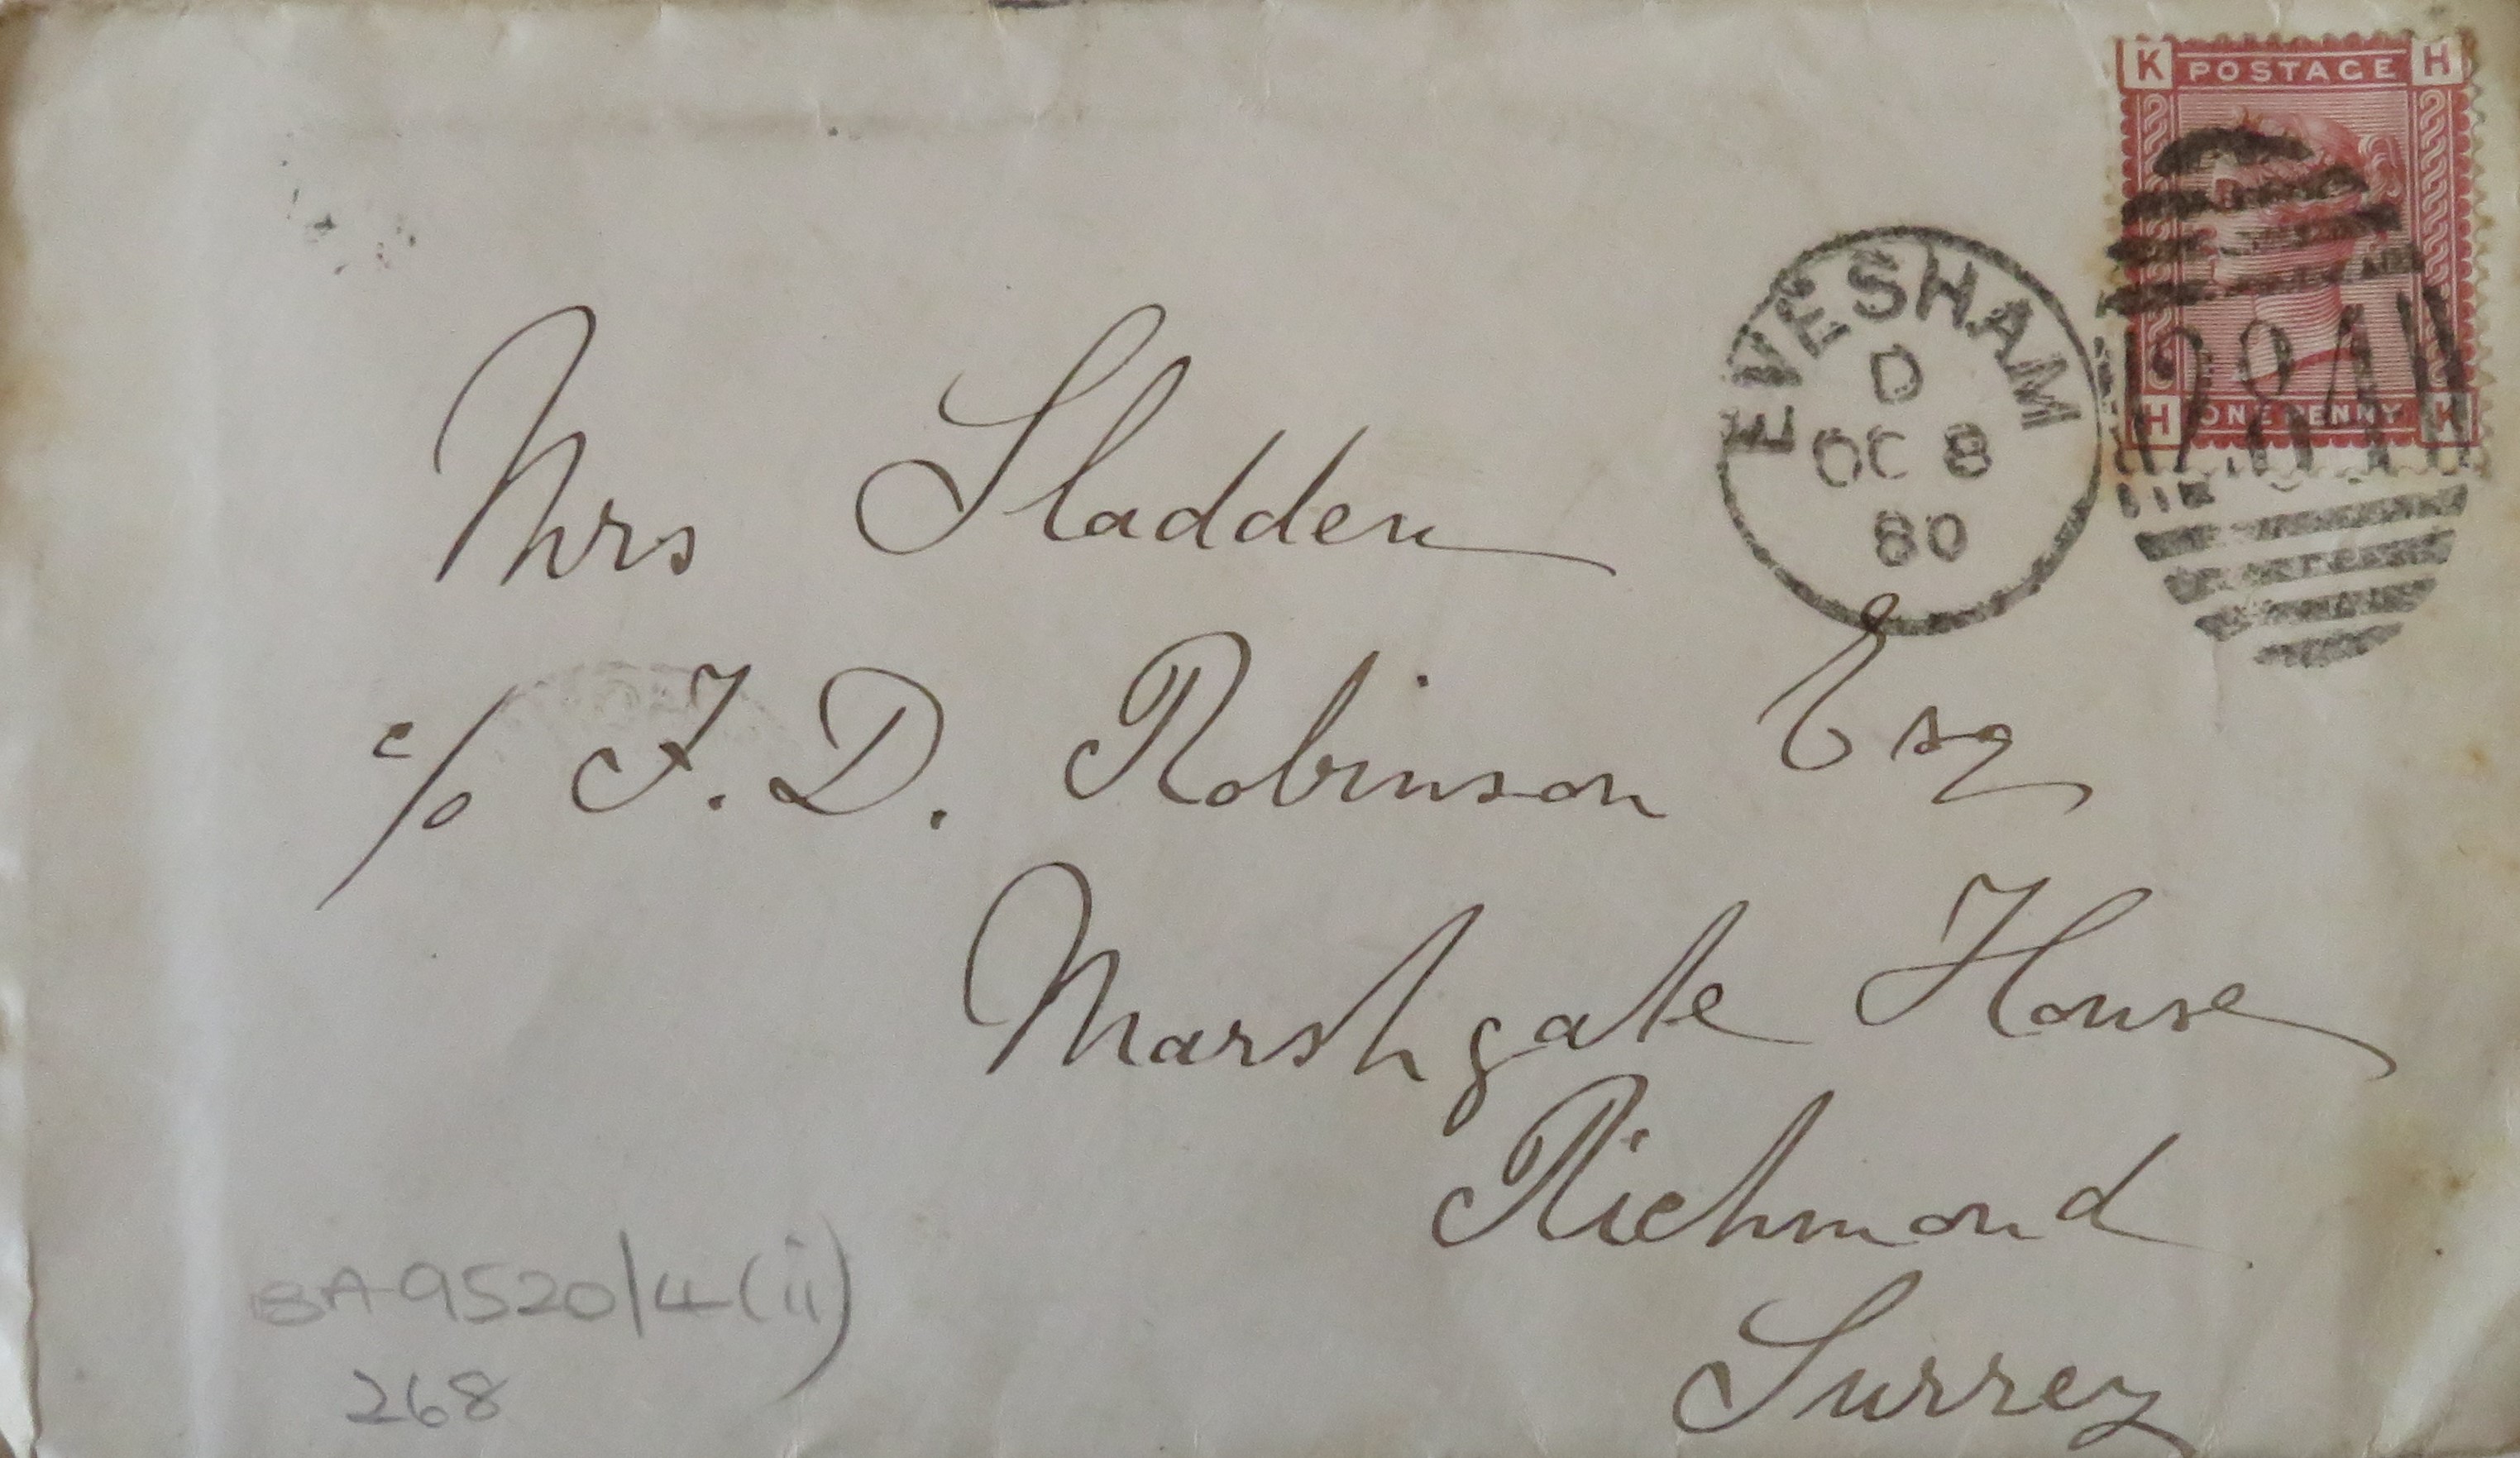 K POSTAGE H
H ONE PENNY K
284
EVESHAM
D
OC 8
80
Mrs Sladden
c/o F. D. Robinson Esq
Marshgate House
Richmond
Surrey
BA 9520/4(ii)
268